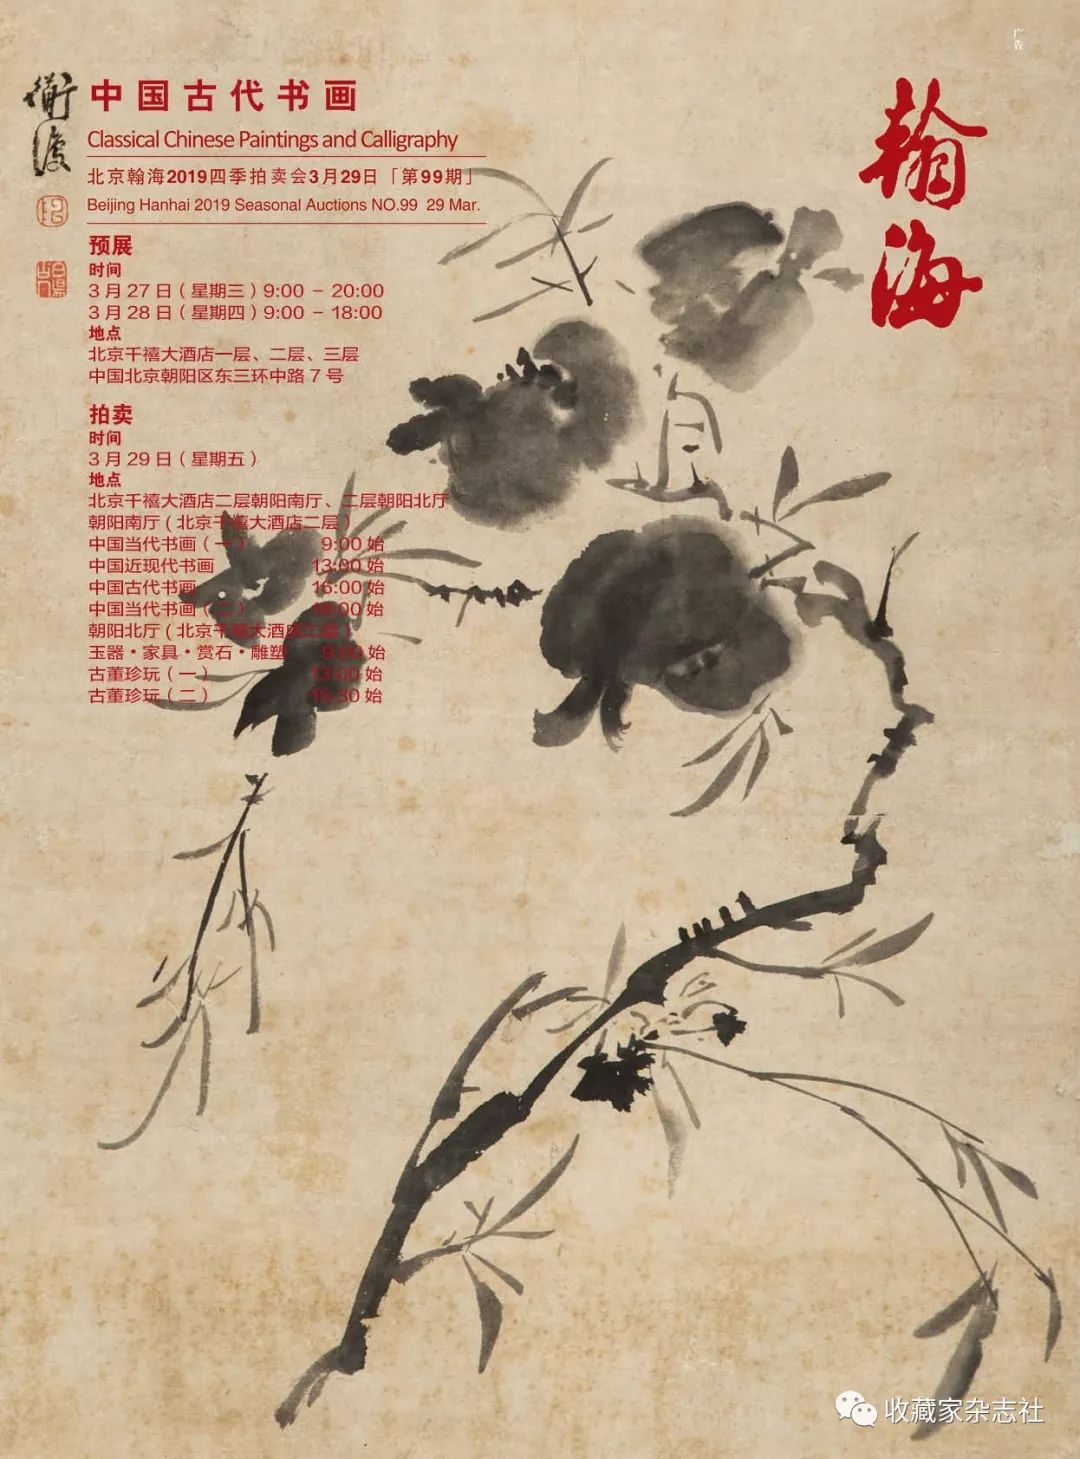 广告
翰海
中国古代书画
Classical Chinese Paintings and Calligraphy
北京翰海2019四季拍卖会3月29日「第99期」
Beijing Hanhai 2019 Seasonal Auctions NO.99 29 Mar.
预展
时间
3月27日（星期三）9:00 － 20:00
3月28日（星期四）9:00 － 18:00
地点
北京千禧大酒店一层、二层、三层
中国北京朝阳区东三环中路7号
拍卖
时间
3月29日（星期五）
地点
北京千禧大酒店二层朝阳南厅、二层朝阳北厅
朝阳南厅（北京千禧大酒店二层）
中国当代书画（一） 9:00 始
中国近现代书画 13:00 始
中国古代书画 16:00 始
中国当代书画（二） :00 始
朝阳北厅（北京千禧大酒店二层）
玉器·家具·赏石·雕塑 9:00 始
古董珍玩（一） 13:00 始
古董珍玩（二） 15:30 始
收藏家杂志社